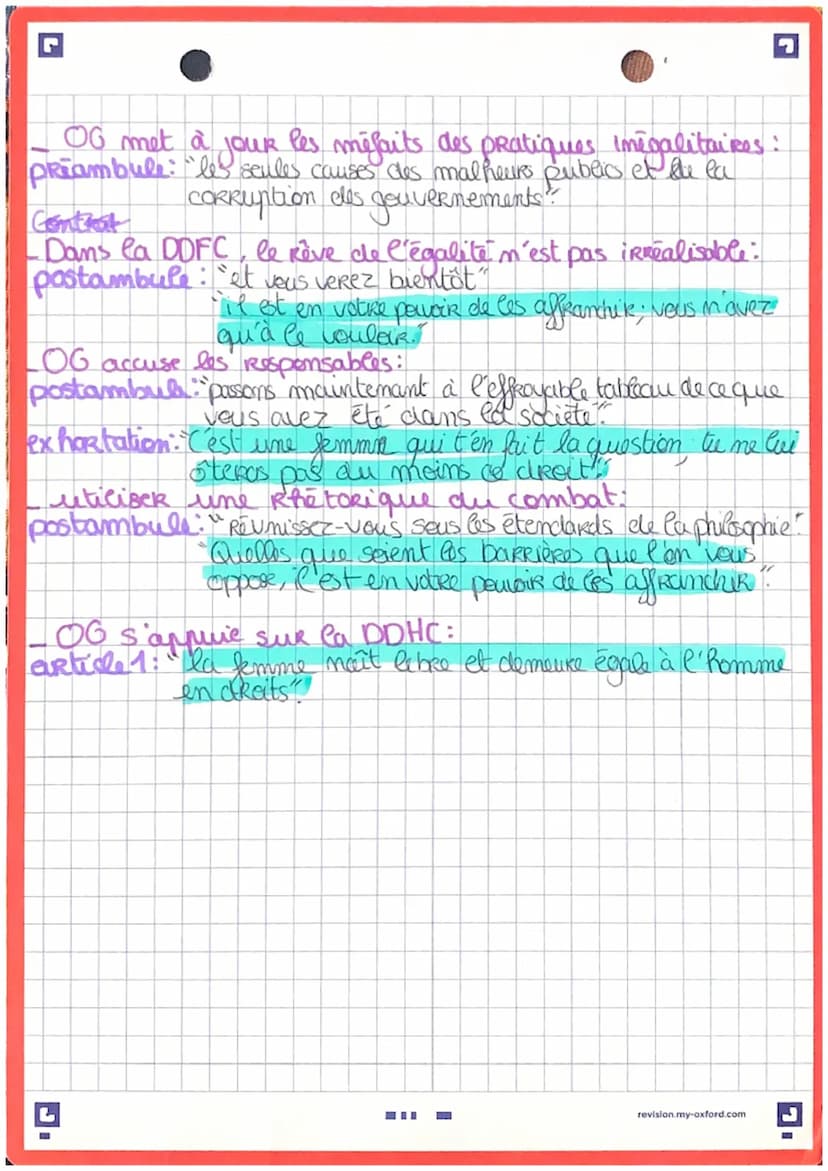 _ OG met à jour les méfaits des pratiques inégalitaires :
préambule : "les seules causes des malheurs publics et de la
corruption des gouvernements".
Contrat
_ Dans la DDFC, le rêve de l'égalité n'est pas irréalisable :
postambule : "et vous verez bientôt"
"il est en votre pouvoir de les affranchir, vous n'avez
qu'à le vouloir."
_ OG accuse les responsables :
postambule : "passons maintenant à l'effroyable tableau de ce que
vous avez été dans la société".
exhortation : "C'est une femme qui t'en fait la question, tu ne lui
ôteras pas du moins ce droit".
_ utiliser une rhétorique du combat :
postambule : "Réunissez-vous sous les étendards de la philosophie".
"Quelles que soient les barrières que l'on vous
oppose, il est en votre pouvoir de les affranchir".
_ OG s'appuie sur la DDHC :
article 1 : "la femme naît libre et demeure égale à l'homme
en droits".
revision.my-oxford.com